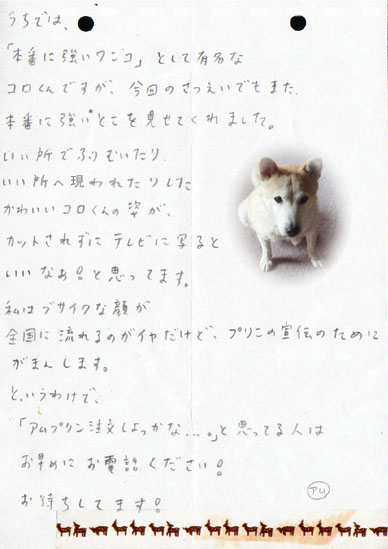 うちでは、
「本番に強いワンコ」として有名な
コロくんですが、今回のさつえいでもまた、
本番に強いとこを見せてくれました。
いい所でふりむいたり、
いい所へ現われたりした
かわいいコロくんの姿が、
カットされずにテレビに写ると
いいなぁ!と思ってます。
私はブサイクな顔が
全国に流れるのがイヤだけど、プリンの宣伝のために
がまんします。
というわけで、
「アムプリン注文しよっかな...。」と思ってる人は
お早めにお電話ください!
お待ちしてます!